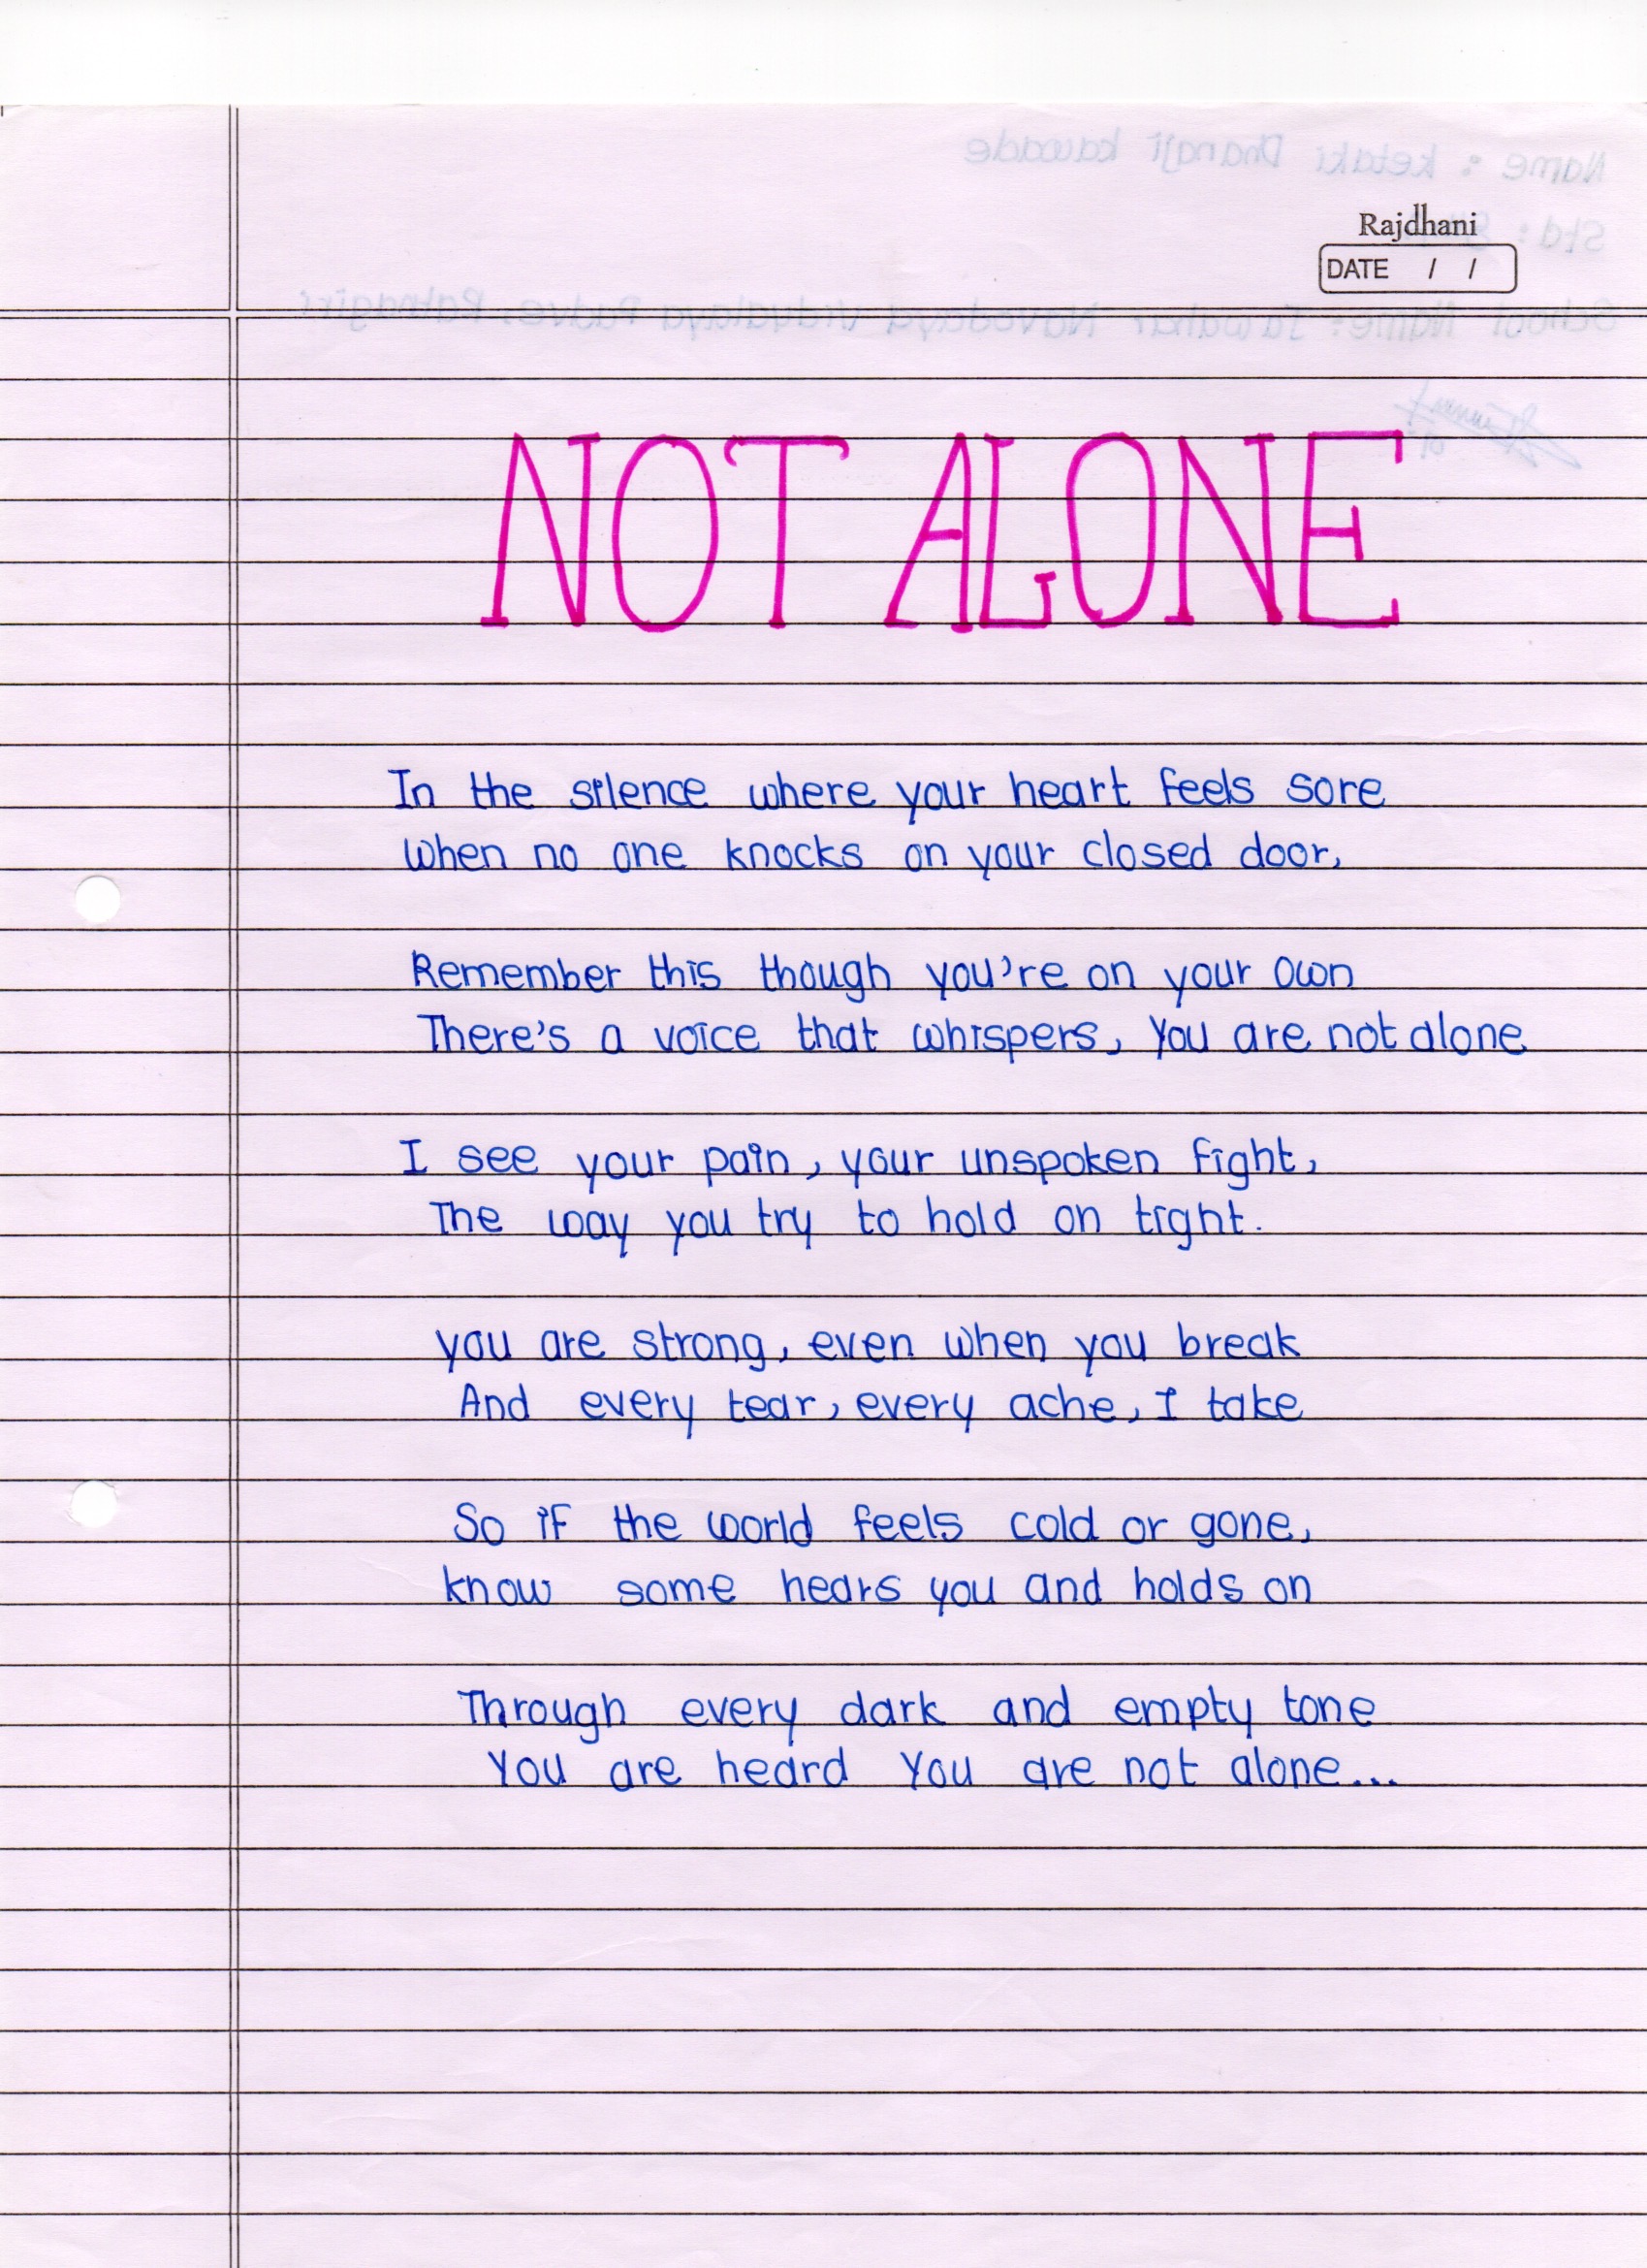 Name : ketaki Dhanaji kawade
Rajdhani
Std :
DATE / /
School Name : Jawahar Navodaya Vidyalaya Padve, Ratnagiri
NOT ALONE
In the silence where your heart feels sore
When no one knocks on your closed door,
Remember this though you're on your own
There's a voice that whispers, You are not alone
I see your pain, your unspoken fight,
The way you try to hold on tight.
you are strong, even when you break
And every tear, every ache, I take
So if the world feels cold or gone,
know some hears you and holds on
Through every dark and empty tone
You are heard You are not alone...